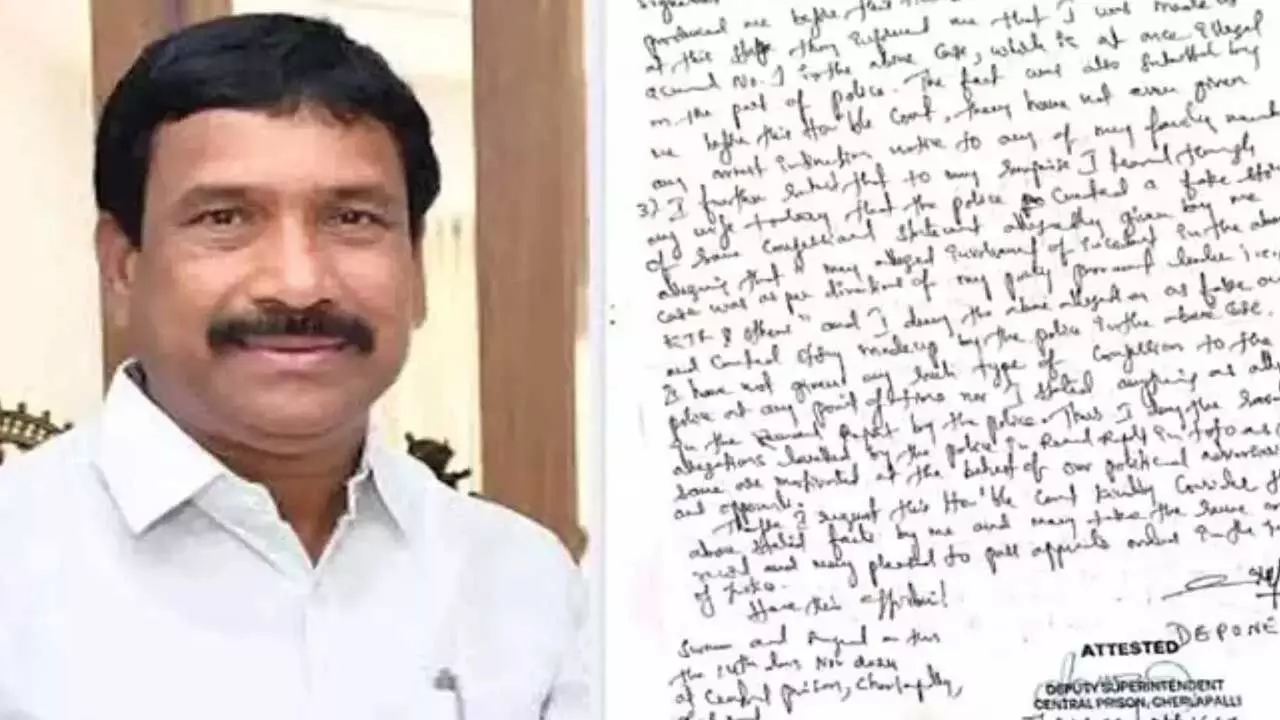 produced me before this
at this stage they informed me that I was made as
accused No. 1 in the above Case, which is at once illegal
on the part of police. The fact was also submitted by
me before this Hon'ble Court, they have not even given
any arrest intimation notice to any of my family
3) I further submit that to my surprise I learnt through
my wife today that the police created a fake story
of some Confessional statement allegedly given by me
alleging that "my alleged involvement of incident in the above
Case was as per directions of my party prominent leader i.e.,
KTR & others" and I deny the above allegation as fake and
and created story made up by the police in the above Case.
I have not given any such type of Confession to the
police at any point of time nor I stated anything as
in the Remand Report by the police. Thus I deny the
allegations levelled by the police in Remand Report in toto as
same are motivated at the behest of our political adversaries
and opponents.
Therefore I request this Hon'ble Court kindly Consider the
above stated facts by me and may take the same on
record and may pleased to pass appropriate orders in the
of Justice.
Hence this affidavit
Sworn and signed on this
the 14th day Nov 2024
at Central prison, Cherlapally,
DEPONE
ATTESTED
DEPUTY SUPERINTENDENT
CENTRAL PRISON, CHERLAPALLI